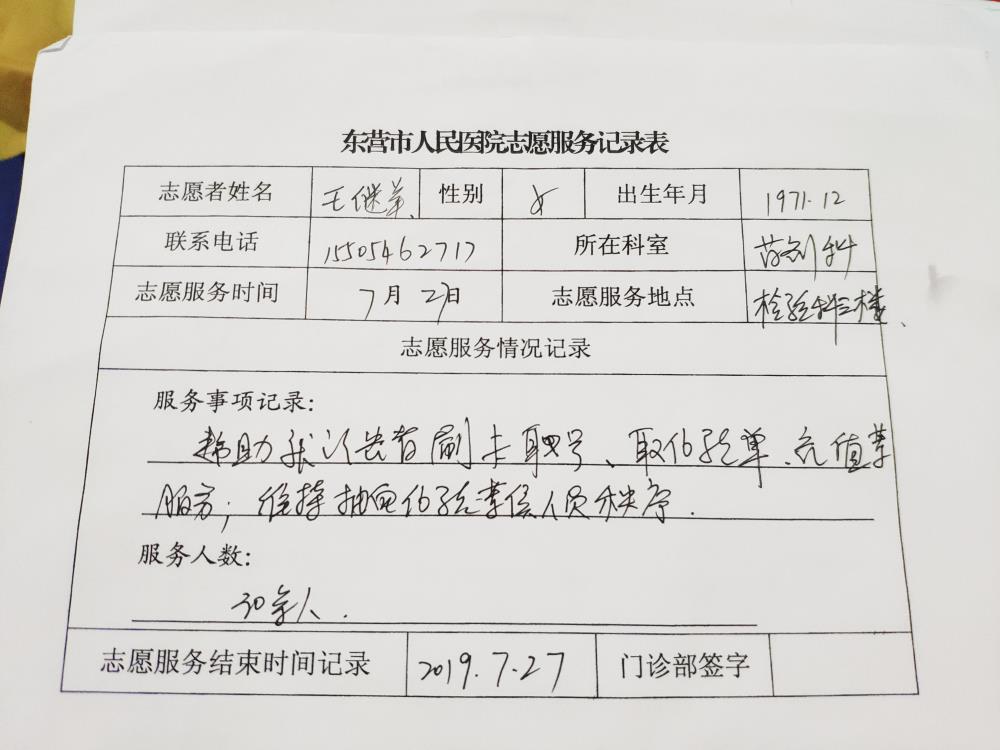 东营市人民医院志愿服务记录表
志愿者姓名 王继 性别 女 出生年月 1971.12
联系电话 15505462717 所在科室 药剂科
志愿服务时间 7月27日 志愿服务地点 检验科三楼、
志愿服务情况记录
服务事项记录:
帮助就诊患者刷卡取号、取化验单、充值等
服务; 维持抽血化验等候人员秩序.
服务人数:
30余人.
志愿服务结束时间记录 2019.7.27 门诊部签字